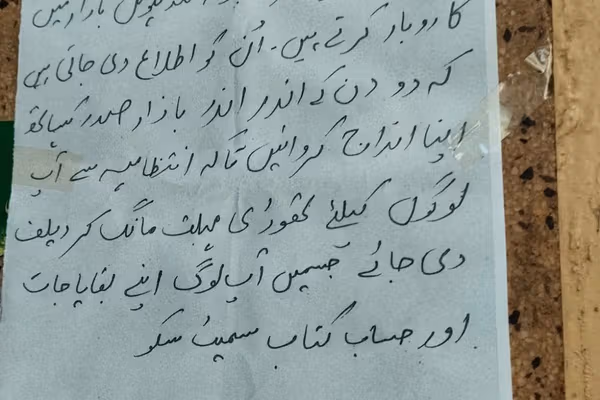 بازار میں
کاروبار کرتے ہیں۔ اُن کو اطلاع دی جاتی ہے
کہ دو دن کے اندر اندر بازار صدر کیساتھ
اپنا اندراج کروائیں تاکہ انتظامیہ سے آپ
لوگوں کیلئے تھوڑی مہلت مانگ کر ریلف
دی جائے جسمیں آپ لوگ اپنے بقایاجات
اور حساب کتاب سمیٹ سکو